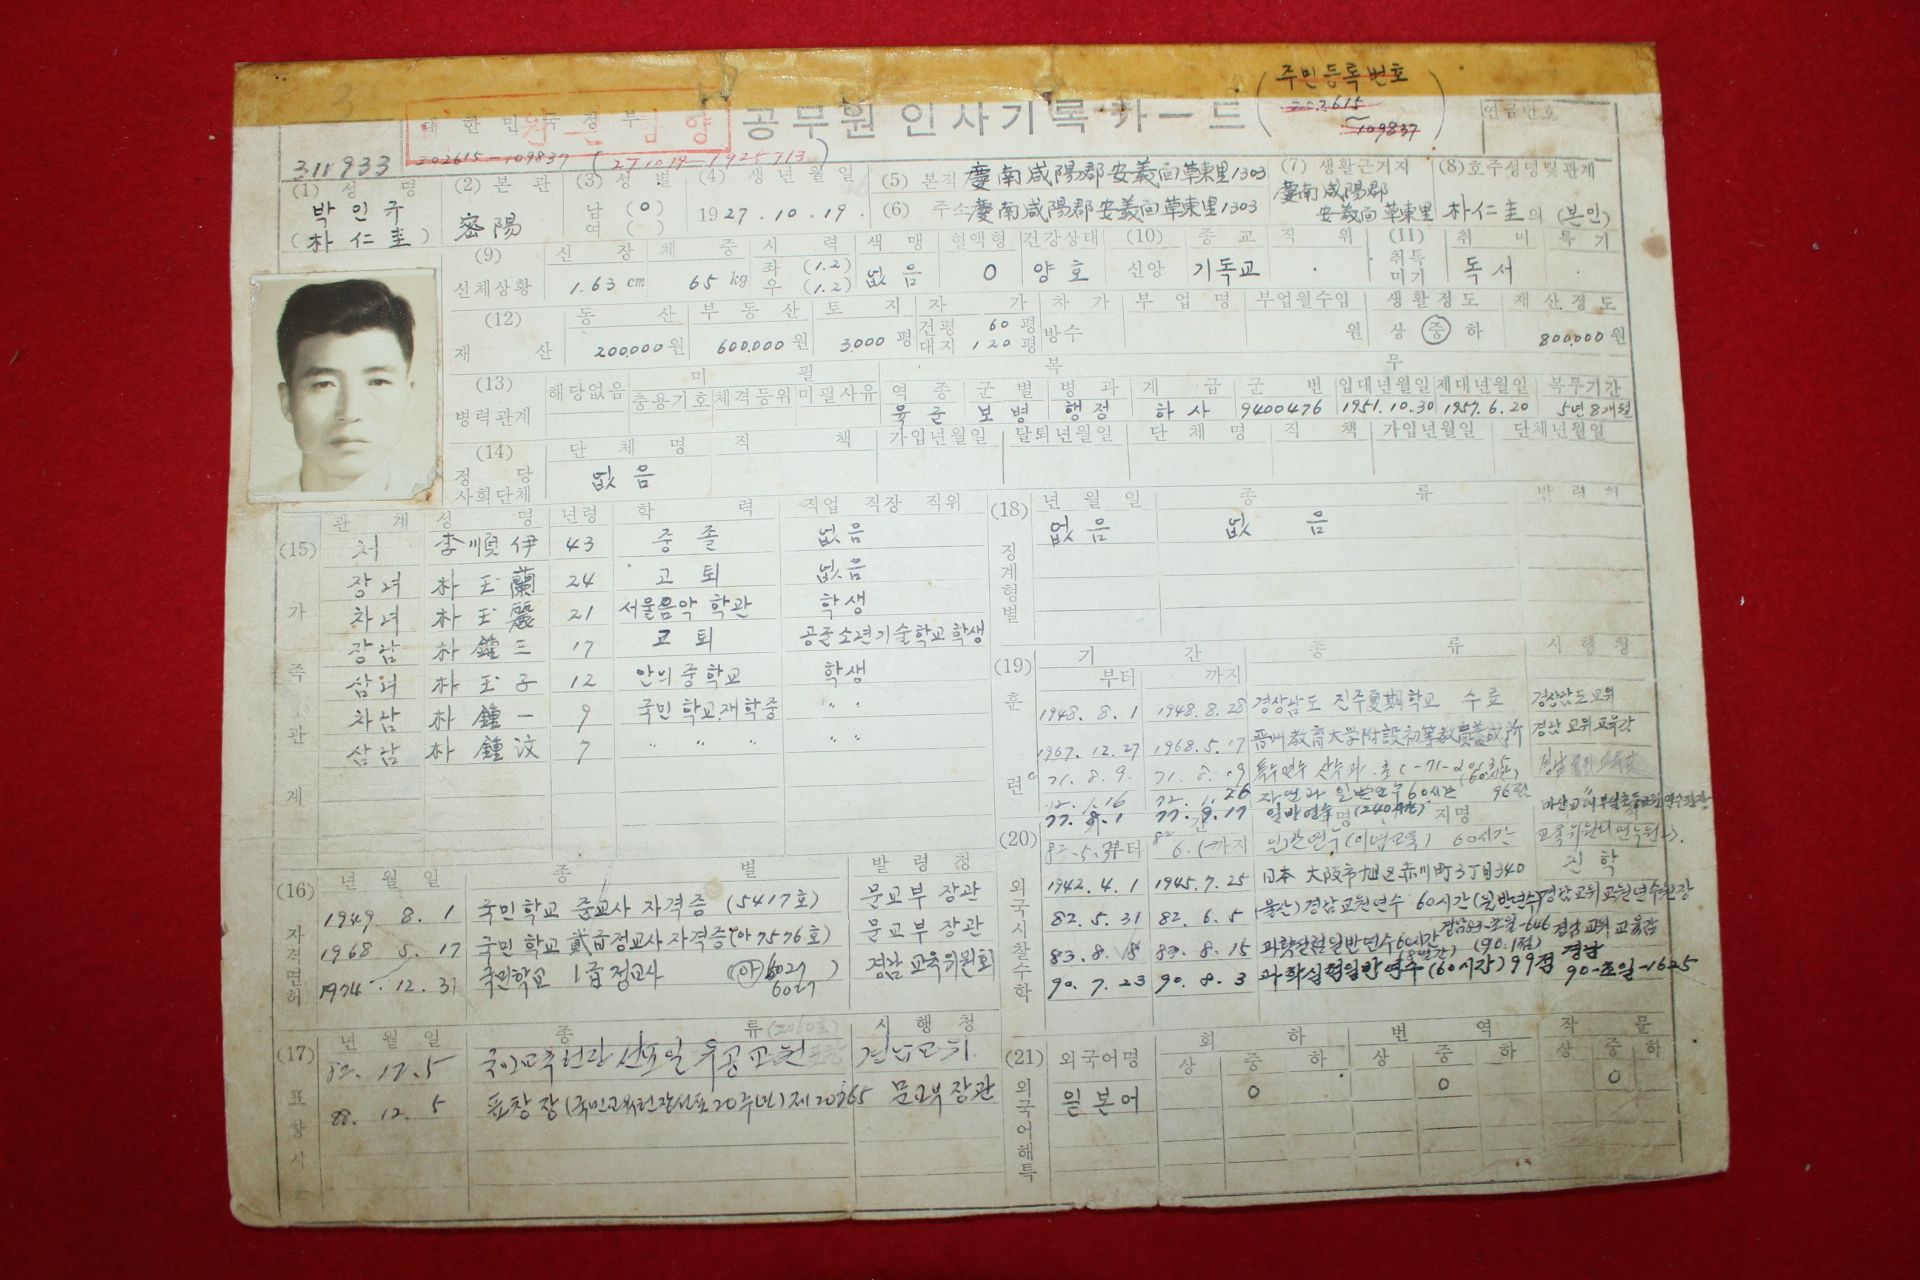 주민등록번호
202615
~109837
대한민국정부 공무원 인사기록카드 연금번호
311933 202615-109837 (271019-1925713)
(1) 성 명 (2) 본 관 (3) 성 별 (4) 생 년 월 일 (5) 본적 慶南咸陽郡安義面草東里1303 (7) 생활근거지 (8) 호주성명및관계
박인규 密陽 남 (O) 1927.10.19. (6) 주소 慶南咸陽郡安義面草東里1303 慶南咸陽郡
(朴仁圭) 여 ( ) 安義面草東里 朴仁圭의 (본인)
(9) 신 장 체 중 시 력 색 맹 혈액형 건강상태 (10) 종 교 직 위 (11) 취 미 특 기
신체상황 1.63 cm 65 kg 좌 (1.2) 없음 O 양호 신앙 기독교 취득 독서
우 (1.2) 미기
(12) 동 산 부 동 산 토 지 자 가 차 가 부 업 명 부업월수입 생활정도 재산정도
재 산 200,000원 600,000원 3,000평 건평 60평 방수 원 상 중 하 800,000원
대지 120평
(13) 미 필 복 무
병력관계 해당없음 충용기호 체격등위 미필사유 역 종 군 별 병 과 계 급 군 번 입대년월일 제대년월일 복무기간
육군 보병 행정 하사 9400476 1951.10.30 1957.6.20 5년8개월
(14) 단 체 명 직 책 가입년월일 탈퇴년월일 단 체 명 직 책 가입년월일
정 당 없음
사회단체
(15) 가 족 관 계
관 계 성 명 년령 학 력 직업 직장 직위
처 李順伊 43 중졸 없음
장녀 朴玉蘭 24 고퇴 없음
차녀 朴玉麗 21 서울음악학관 학생
장남 朴鍾三 17 고퇴 공군소년기술학교학생
삼녀 朴玉子 12 안의중학교 학생
차남 朴鍾一 9 국민학교.재학중 〃
삼남 朴鍾汶 7 〃 〃 〃 〃
(16) 자격면허
년 월 일 종 별 발 령 청
1949 8. 1 국민학교 준교사 자격증 (5417호) 문교부 장관
1968 5. 17 국민학교 貳급정교사 자격증(아7576호) 문교부 장관
1974. 12. 31 국민학교 1급 정교사 (아 6027) 경남교육위원회
6027
(17) 표창
년 월 일 종 류 시 행 청
82. 12. 5 국민교육헌장 선포일 유공교원 경남교위
88. 12. 5 표창장(국민교육헌장선포20주년) 문교부장관
(18) 징계형벌
년 월 일 종 류
없음 없음
(19) 훈 련
기 간 종 류 시 행 청
부터 까지
1948. 8. 1 1948. 8. 28 경상남도 진주夏期학교 수료 경상남도교위
1967. 12. 27 1968. 5. 17 晋州敎育大学附設初等敎員養成所 경남교위교육감
71. 8. 9. 71. 8. 19
72. 1. 16 72. 1. 26 자연과 일반연수 60시간
77. 8. 1 77. 9. 17 일반연수 (240시간)
(20) 외국시찰수학
부터 까지 일반연수(이념교육) 60시간
1942. 4. 1 1945. 7. 25 日本 大阪市旭区赤川町3丁目340 진학
82. 5. 31 82. 6. 5 (울산)경남교원연수 60시간(일반연수) 경남교위교원연수원장
83. 8. 8 83. 8. 15 과학실험일반연수60시간 (90.1점) 경남교위 교육감
90. 7. 23 90. 8. 3 과학실험일반연수 (60시간) 99점 경남 90-초일-1625
(21) 외국어해득
외국어명 회 하 번 역 작 문
상 중 하 상 중 하 상 중 하
일본어 O O O